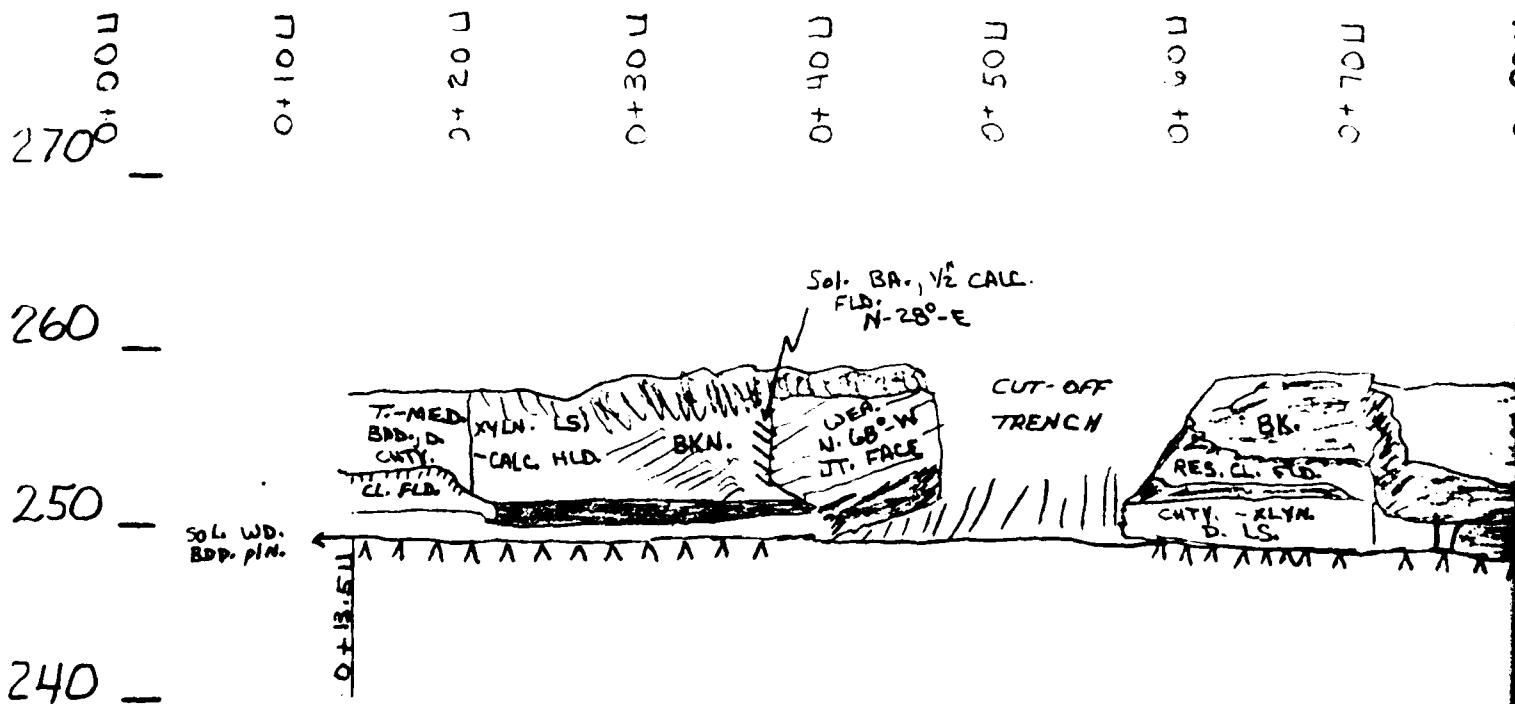 0+00U
0+10U
0+20U
0+30U
0+40U
0+50U
0+60U
0+70U
270
260
Sol. BA., 1/2" CALC.
FLD.
N-28°-E
CUT-OFF
TRENCH
T.-MED.
BDD., D.
CHTY.
CL. FLD.
XYLN. LS)
-CALC. HLD.
BKN.
WEA.
N. 68°-W
JT. FACE
BK.
RES. CL. FLD.
CHTY. - XLYN.
D. LS.
250
SOL. WD.
BDD. PLN.
0+13.5U
240